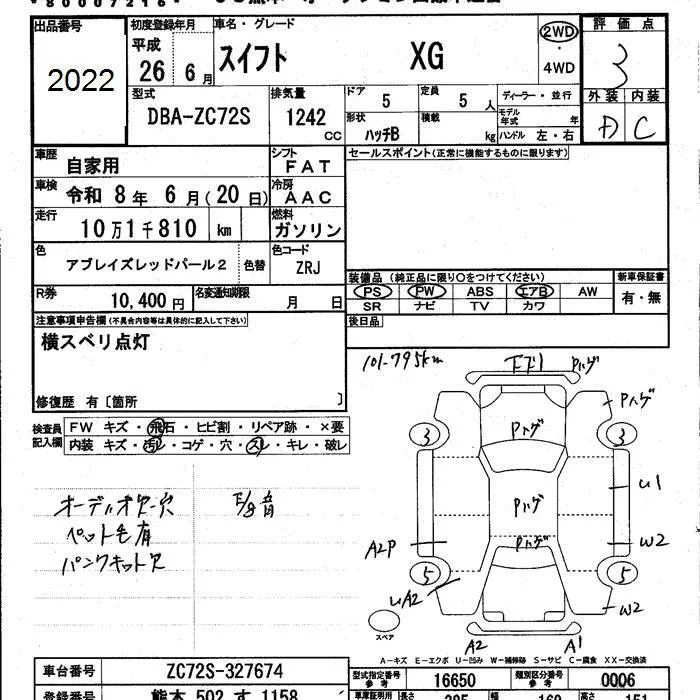 *80007216*
出品番号
2022
初度登録年月
平成
26 6月
車名・グレード
スイフト XG
2WD
・
4WD
評価点
3
外装 内装
D C
型式
DBA-ZC72S
排気量
1242
CC
ドア 5
定員 5 人
ディーラー・並行
形状 ハッチB
積載 kg
モデル年式 年
ハンドル 左・右
車歴 自家用
シフト FAT
セールスポイント(正常に機能するものに限ります)
車検 令和 8年 6月(20日)
冷房 AAC
走行 10万1千810 km
燃料 ガソリン
色 アブレイズレッドパール2 色替
色コード ZRJ
装備品 (純正品に限り○をつけてください)
新車保証書
PS PW ABS エアB AW
SR ナビ TV カワ
有・無
R券 10,400円
名変通知期限 月 日
後日品
注意事項申告欄(不具合内容等は具体的に記入して下さい)
横スベリ点灯
修復歴 有〔箇所 〕
検査員記入欄
FW キズ・飛石・ヒビ割・リペア跡・×要
内装 キズ・汚レ・コゲ・穴・スレ・キレ・破レ
オーディオ欠穴
ペット毛有
パンクキット欠
101-795km
下下1 Pハゲ
Pハゲ
Pハゲ
3 3
Pハゲ
U1
Pハゲ
A2P
W2
5 5
UA2
W2
スペア
A2 A1
A-キズ E-エクボ U-凹み W-補修跡 S-サビ C-腐食 XX-交換済
車台番号 ZC72S-327674
型式指定番号 参考 16650
類別区分番号 参考 0006
登録番号 熊本 502 す 1158
車庫証明用
長さ 385
幅 169
高さ 151